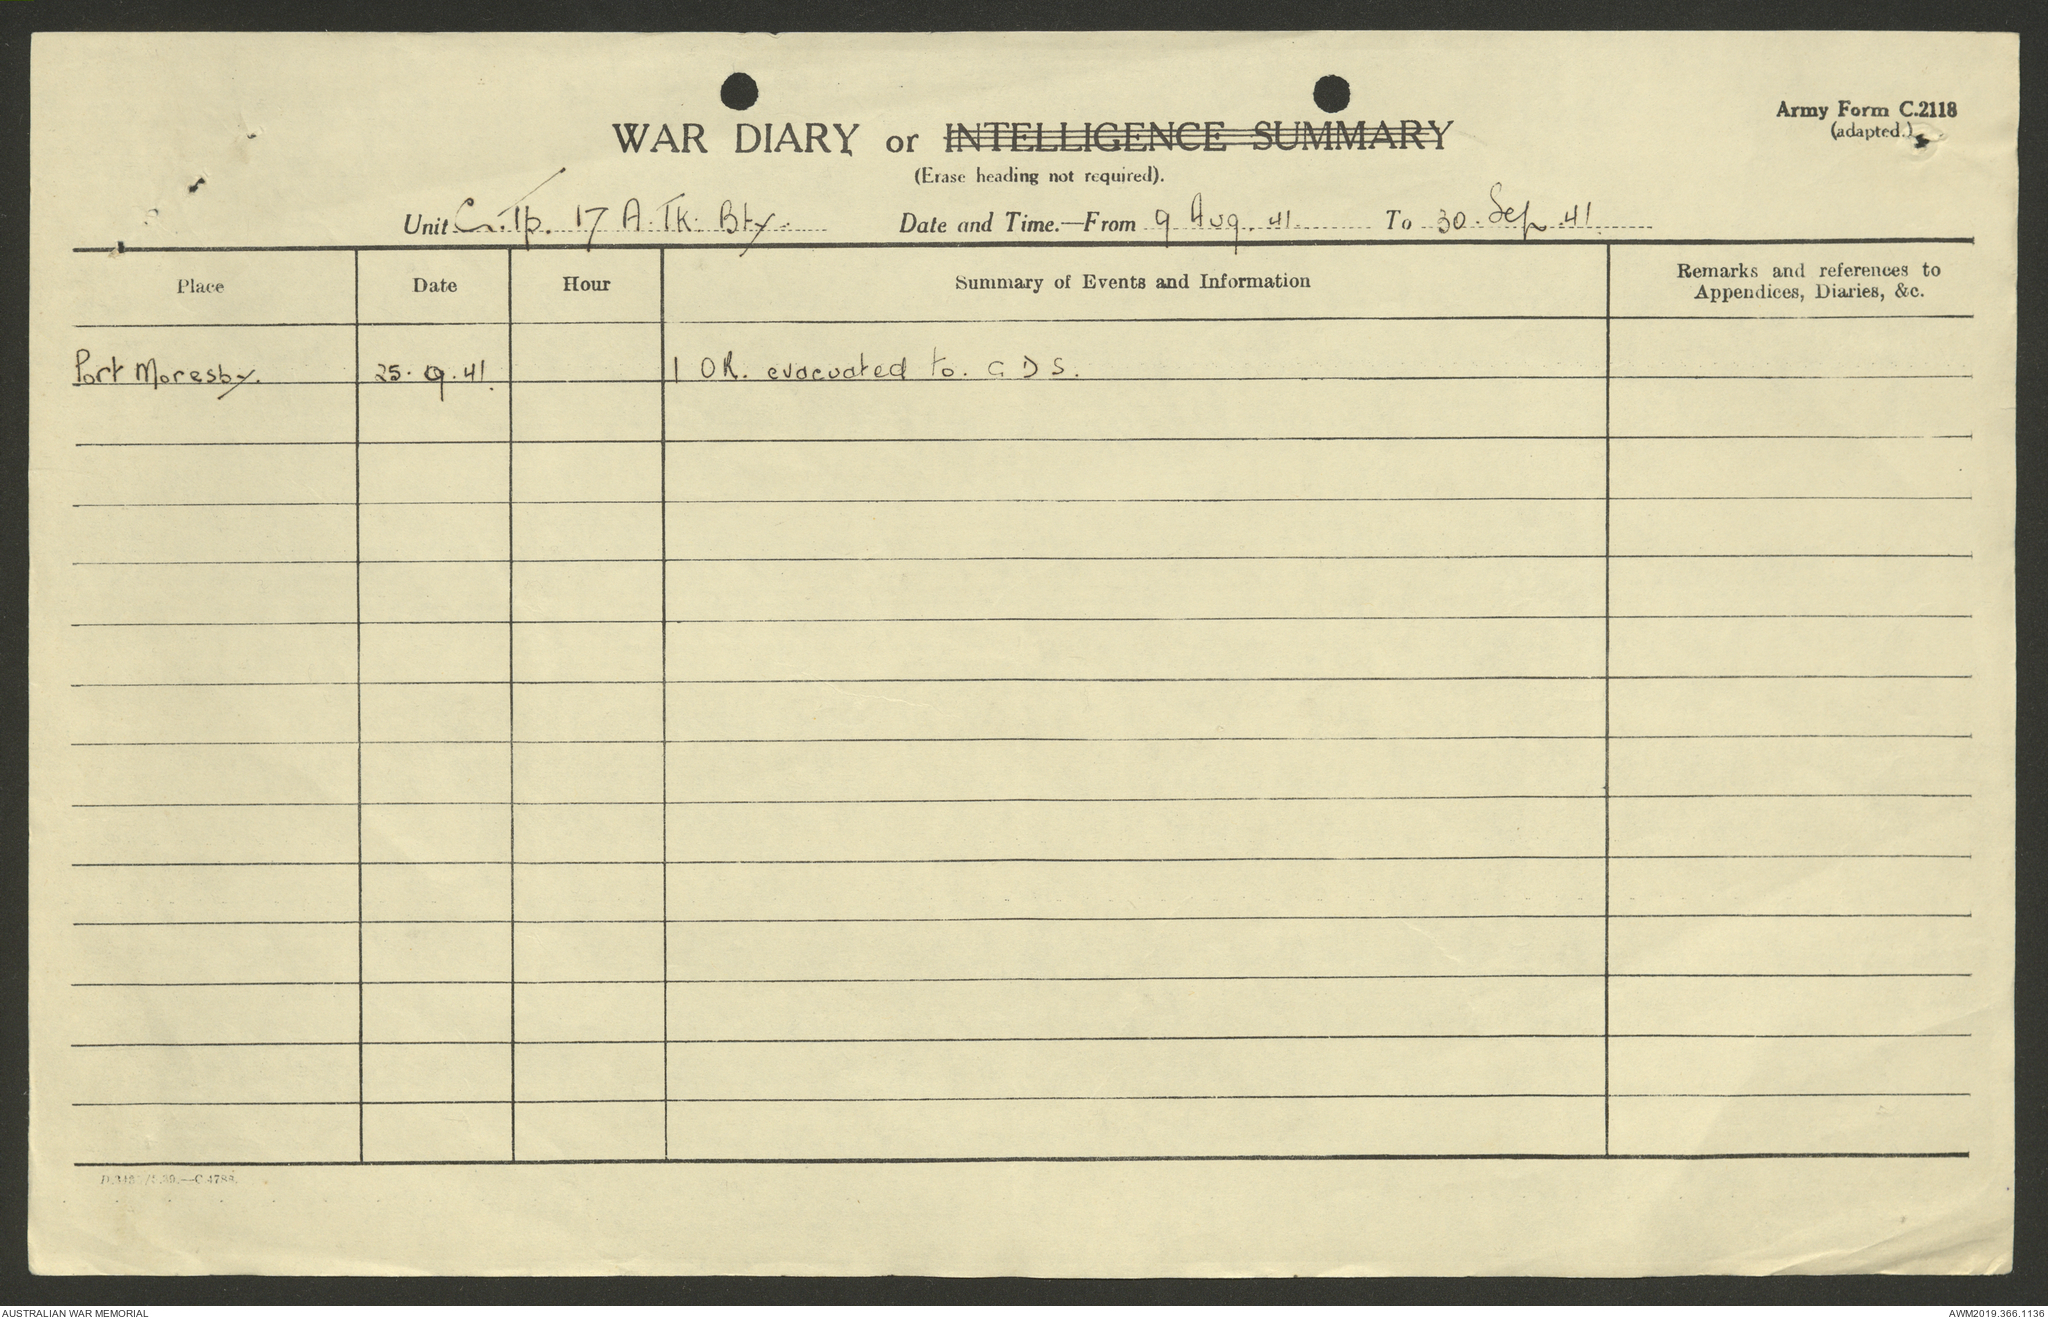 Army Form C.2118
(adapted.)
WAR DIARY or INTELLIGENCE SUMMARY
(Erase heading not required).
Unit C. Tp. 17 A. Tk. Bty. Date and Time.—From 9 Aug. 41. To 30. Sep. 41.
Place Date Hour Summary of Events and Information Remarks and references to
Appendices, Diaries, &c.
Port Moresby. 25. 9. 41. 1 OR. evacuated to. C D S.
AUSTRALIAN WAR MEMORIAL AWM2019.366.1136